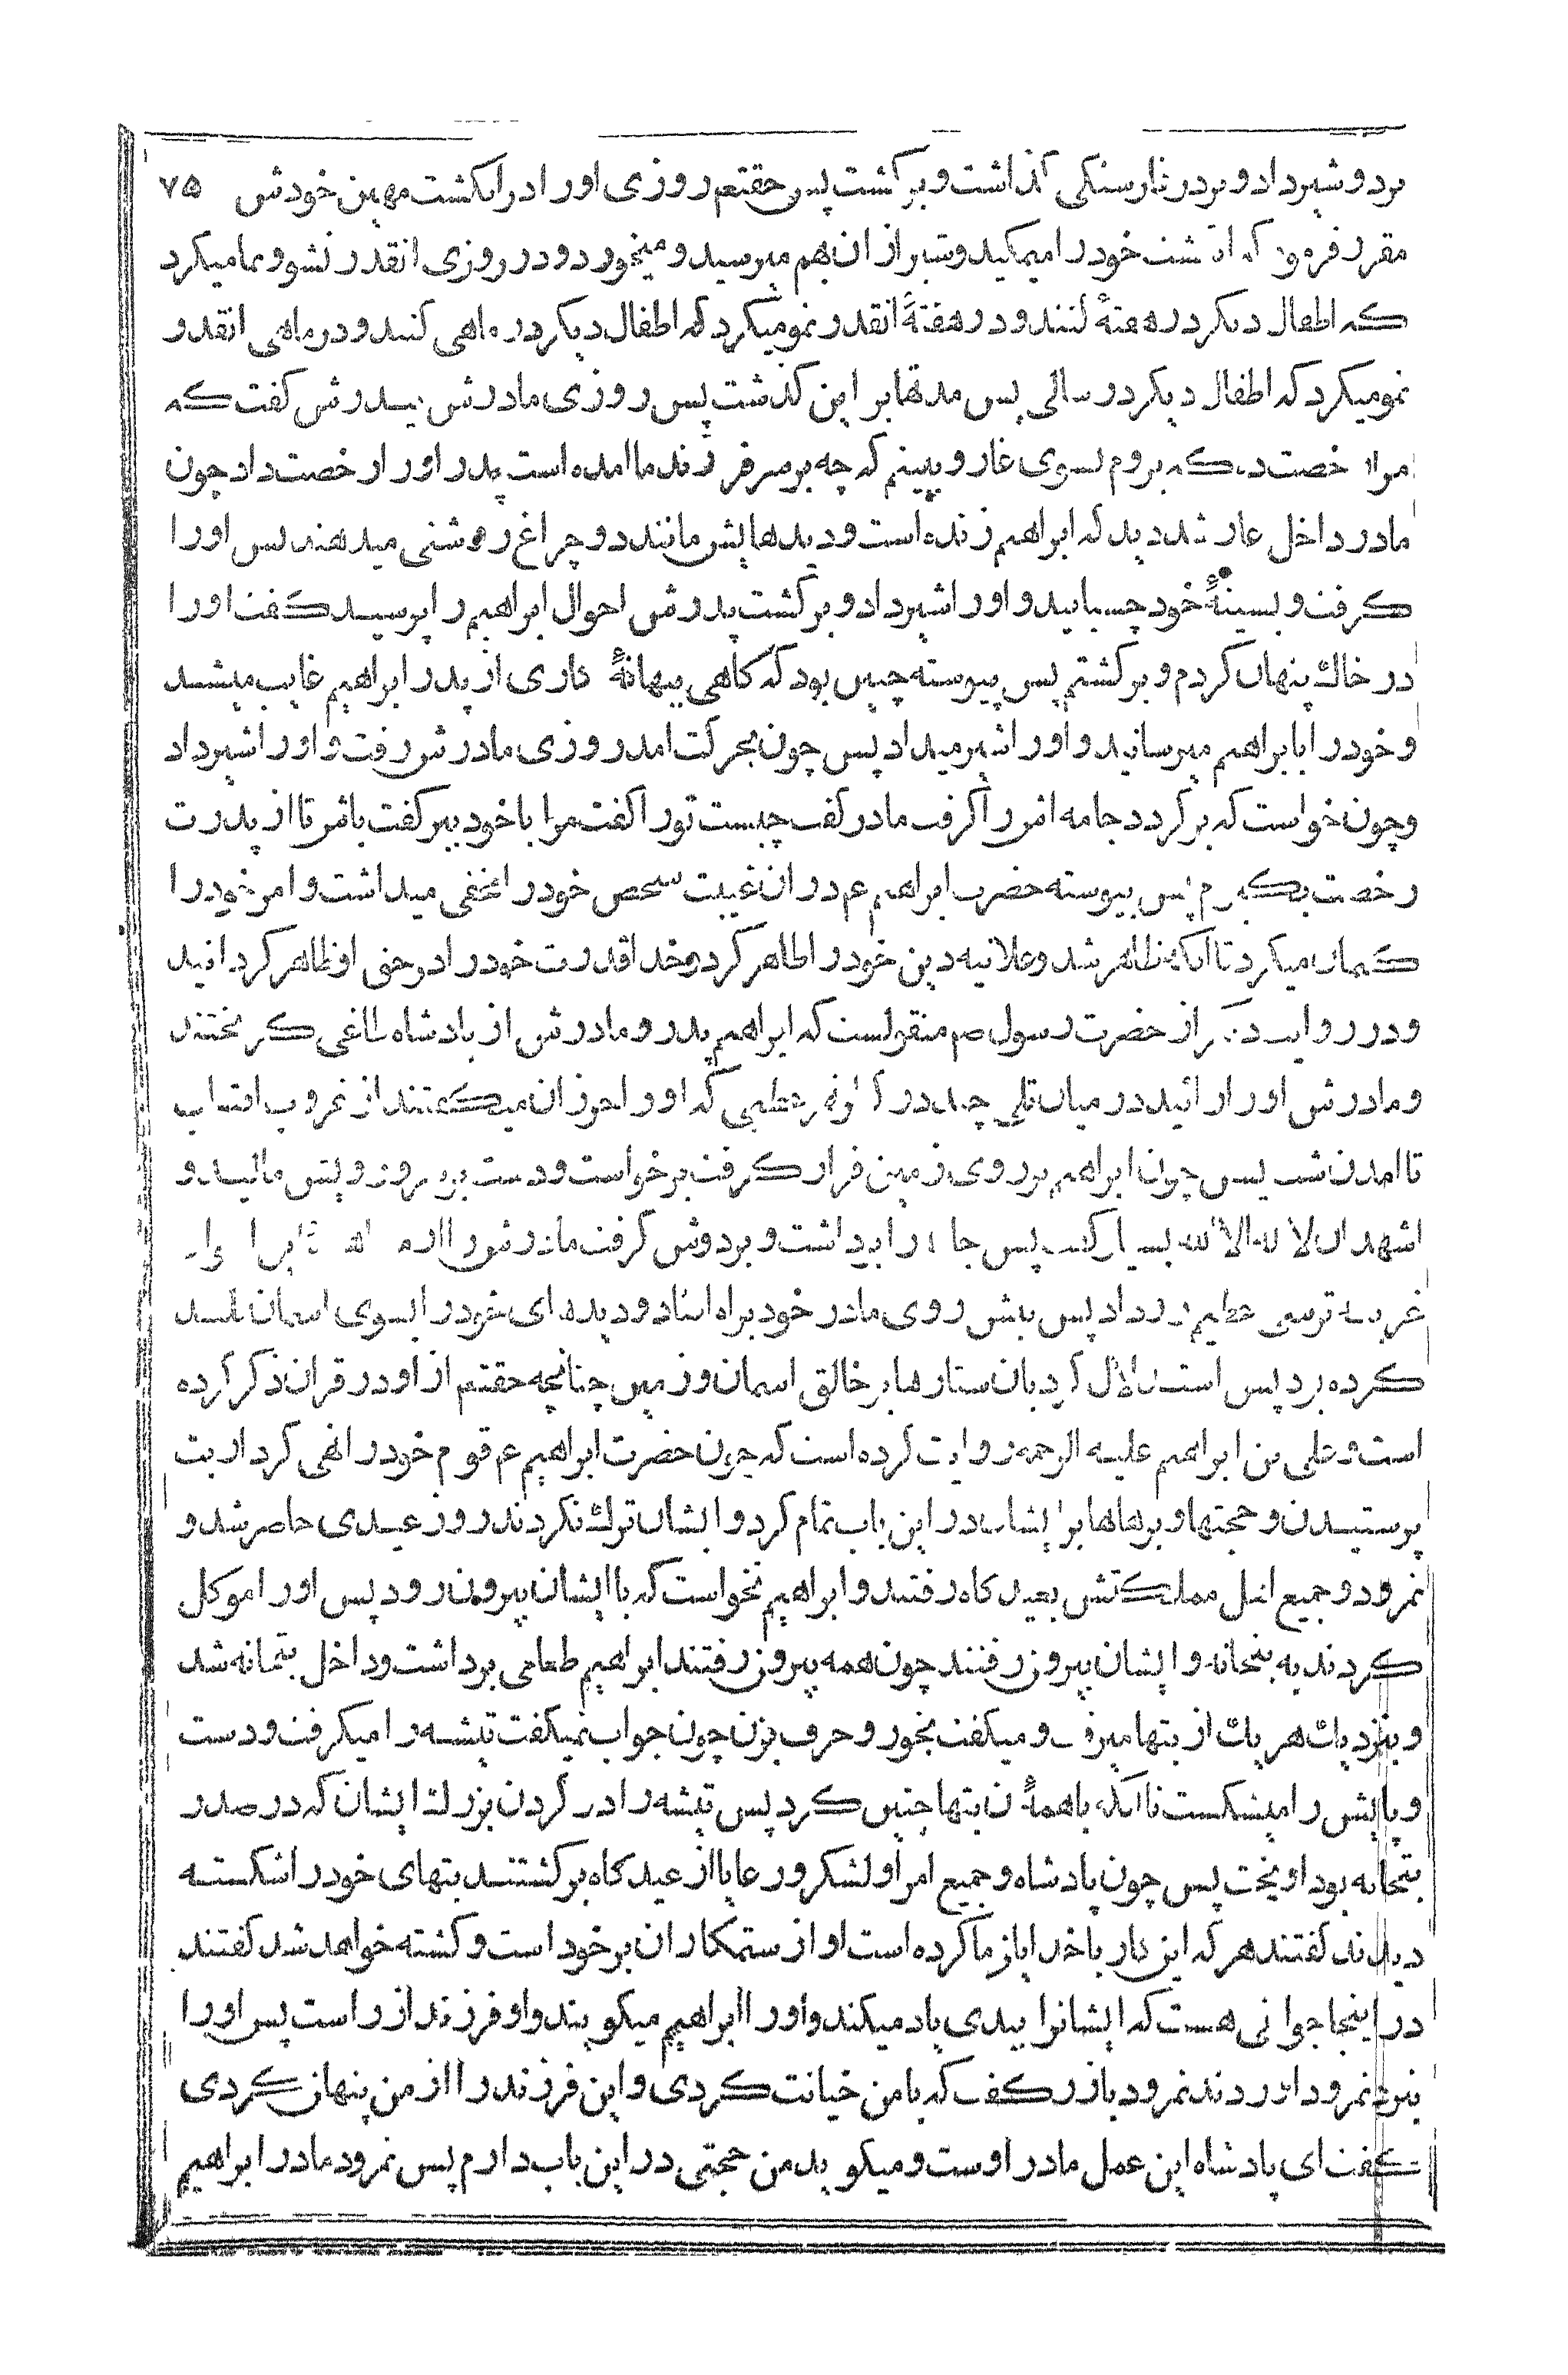 برد و شیر داد و بر در غار سنکی کذاشت و برکشت پس حقتعم روزی او را در انکشت مهین خودش ۷۵
مقرر فرمود که انکشت خود را میمکید و شیر از ان بهم میرسید و میخورد و در روزی انقدر نشو و نما میکرد
که اطفال دیکر در هفتهٔ کنند و در هفتهٔ انقدر نمو میکرد که اطفال دیکر در ماهی کنند و در ماهی انقدر
نمو میکرد که اطفال دیکر در سالی پس مدتها بر این کذشت پس روزی مادرش بپدرش کفت که
مرا رخصت ده که بروم بسوی غار و ببینم که چه بر سر فرزند ما امده است پدر او را رخصت داد چون
مادر داخل غار شد دید که ابراهیم زنده است و دیدهایش مانند دو چراغ روشنی میدهند پس او را
کرفت و بسینهٔ خود چسبانید و او را شیر داد و برکشت پدرش احوال ابراهیم را پرسید کفت او را
در خاک پنهان کردم و برکشتم پس پیوسته چنین بود که کاهی ببهانهٔ کاری از پدر ابراهیم غایب میشد
و خود را بابراهیم میرسانید و او را شیر میداد پس چون بحرکت امد روزی مادرش رفت و او را شیر داد
و چون خواست که برکردد جامه اش را کرفت مادر کفت چیست تو را کفت مرا با خود ببر کفت باش تا از پدرت
رخصت بکیرم پس پیوسته حضرت ابراهیم عم در ان غیبت شخص خود را مخفی میداشت و امر خود را
کتمان میکرد تا انکه ظاهر شد و علانیه دین خود را ظاهر کرد و خدا قدرت خود را در حق او ظاهر کردانید
و در روایت دیکر از حضرت رسول صم منقولست که ابراهیم پدر و مادرش از پادشاه طاغی کریختند
و مادرش او را زائید در میان تلی چند در کنار نهر عظیمی که او را حرزان میکفتند از غروب افتاب
تا امدن شب پس چون ابراهیم بر روی زمین قرار کرفت برخواست و دست بر رو و پس مالید و
اشهد ان لا اله الا الله بسیار کفت پس جامه را برداشت و بر دوش کرفت مادرش را از مشاهده
غریبه ترسی عظیم رو داد پس پیش روی مادر خود براه افتاد و دیده ای خود را بسوی اسمان بلند
کرده بود پس استدلال کرد بان ستارها بر خالق اسمان و زمین چنانچه حقتعم از او در قران ذکر کرده
است و علی بن ابراهیم علیه الرحمه روایت کرده است که چون حضرت ابراهیم عم قوم خود را نهی کرد از بت
پرستیدن و حجتها و برهانها بر ایشان در این باب تمام کرد و ایشان ترک نکردند روز عیدی حاضر شد و
نمرود و جمیع اهل مملکتش بعید کاه رفتند و ابراهیم نخواست که با ایشان بیرون رود پس او را موکل
کردند به بتخانه و ایشان بیرون رفتند چون همه بیرون رفتند ابراهیم طعامی برداشت و داخل بتخانه شد
و بنزد یک هر یک از بتها میرفت و میکفت بخور و حرف بزن چون جواب نمیکفت تیشه را میکرفت و دست
و پایش را میشکست تا انکه با همهٔ ان بتها چنین کرد پس تیشه را در کردن بزرک ایشان که در صدر
بتخانه بود اویخت پس چون پادشاه و جمیع امرا و لشکر و رعایا از عید کاه برکشتند بتهای خود را شکسته
دیدند کفتند هر که این کار با خدایان ما کرده است او از ستمکاران بر خود است و کشته خواهد شد کفتند
در اینجا جوانی هست که ایشانرا ببدی یاد میکند و او را ابراهیم میکویند و او فرزند ازر است پس او را
بنزد نمرود اوردند نمرود بازر کفت که با من خیانت کردی و این فرزند را از من پنهان کردی
کفت ای پادشاه این عمل مادر اوست و میکوید من حجتی در این باب دارم پس نمرود مادر ابراهیم